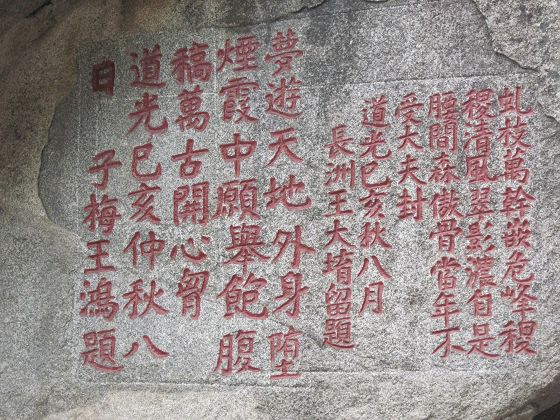 虬枝萬幹嵌危峰稷
稷清風翠影濃自是
腰間森傲骨當年不
受大夫封
道光己亥秋八月
長洲王大堉留題
夢遊天地外身墮
煙霞中願舉飽腹
稿萬古開心胷
道光己亥仲秋八
日 子梅王鴻題